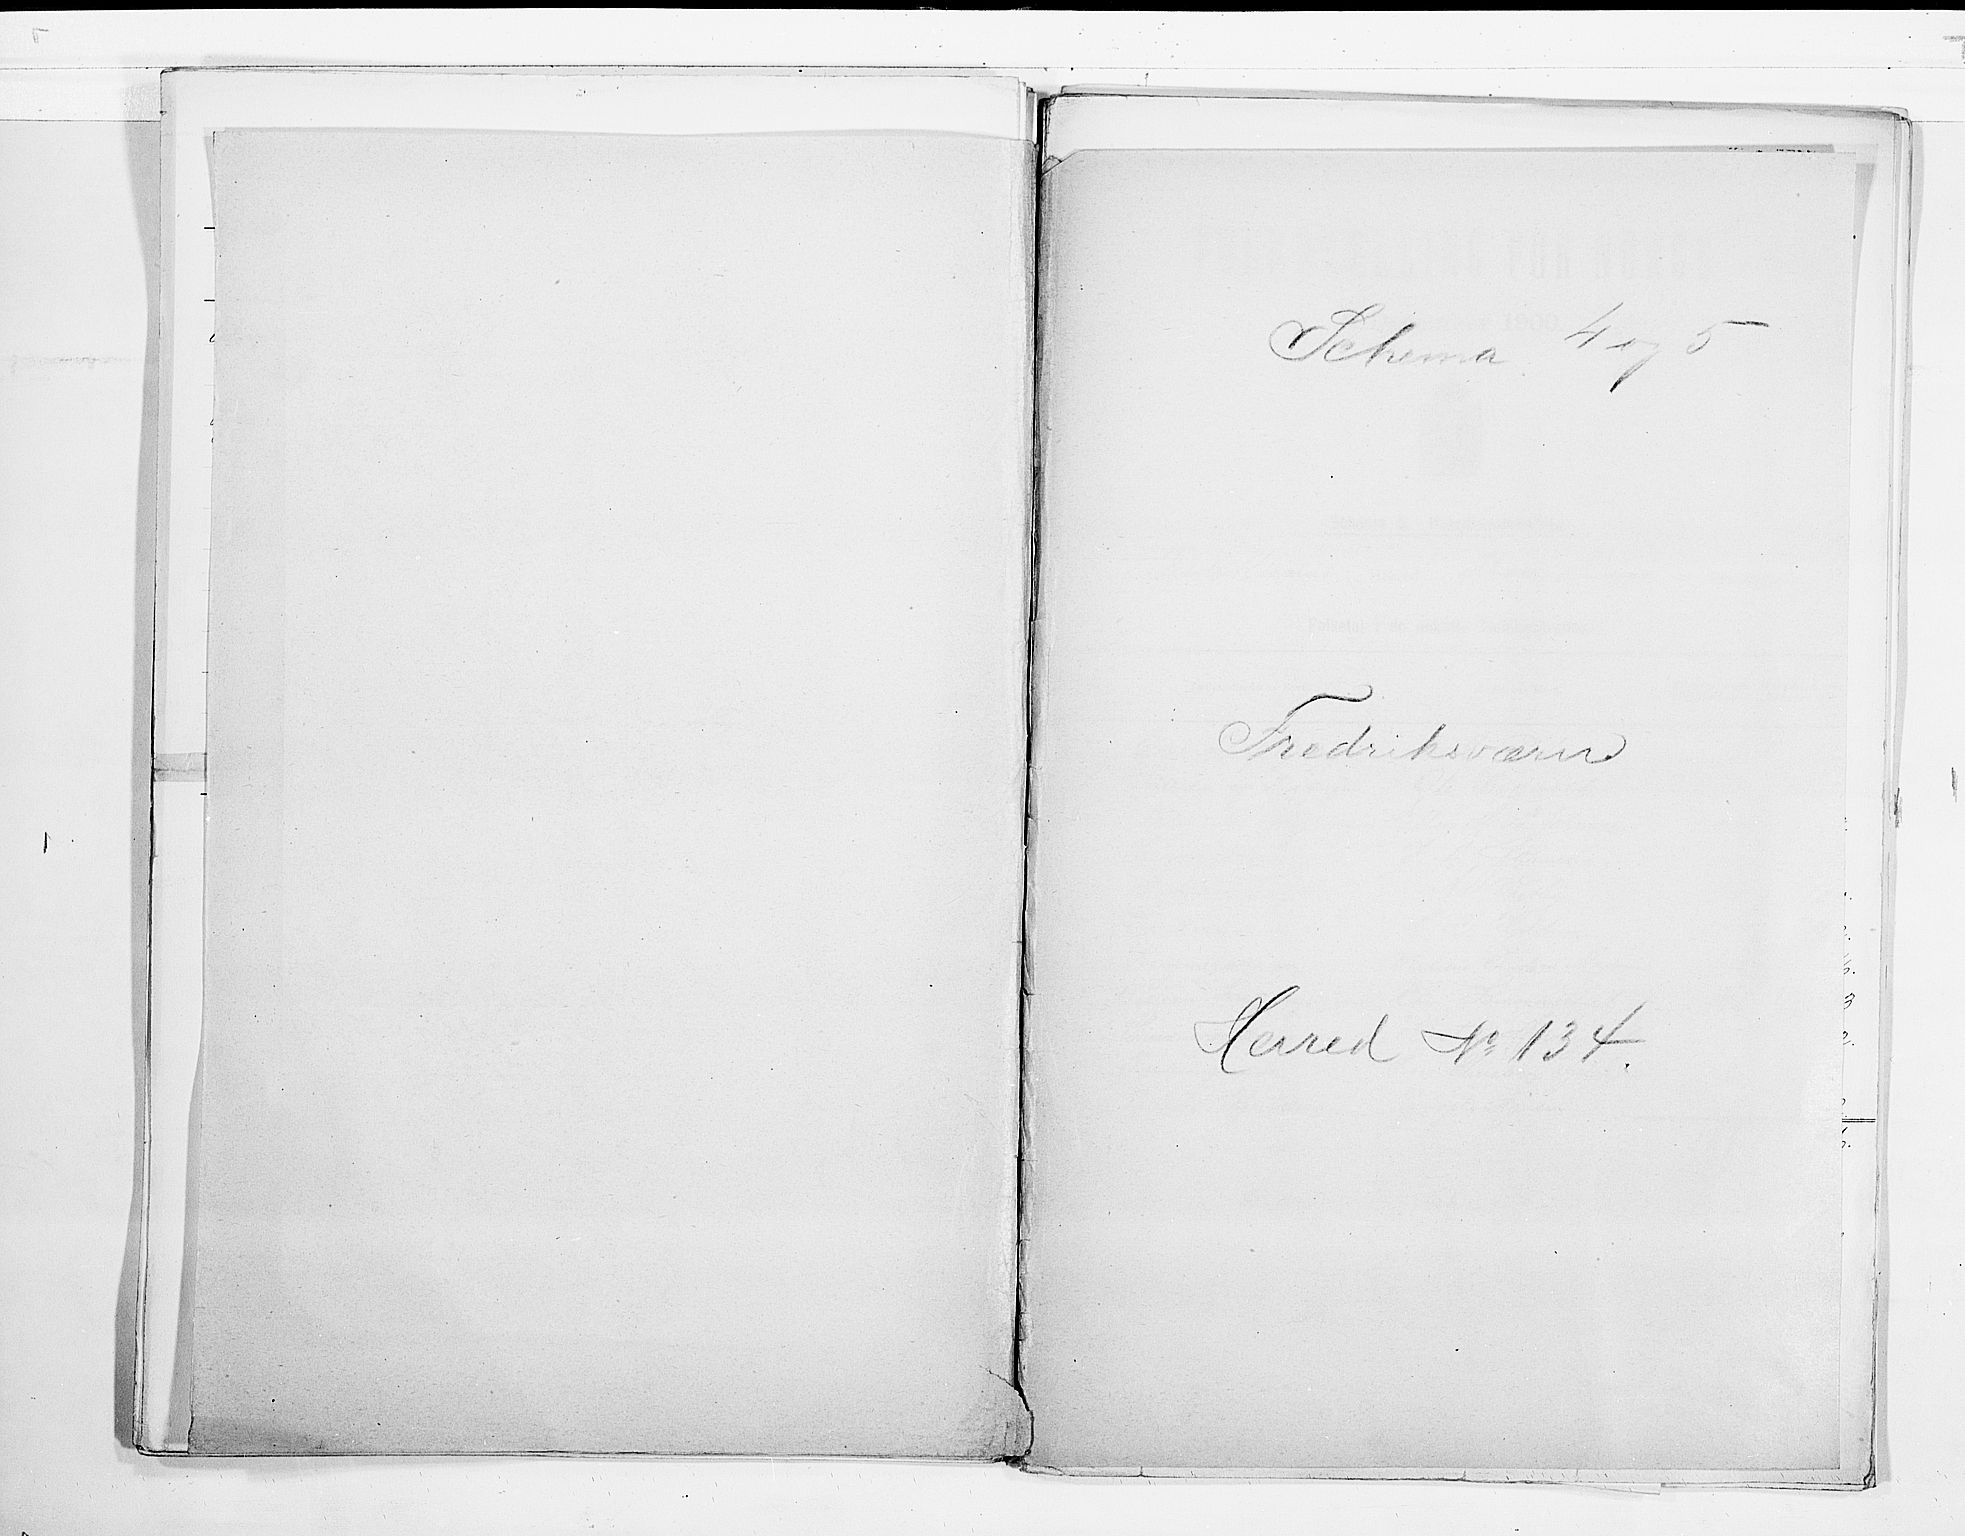 Schema 4 og 5
Fredriksværn
Herred № 134.